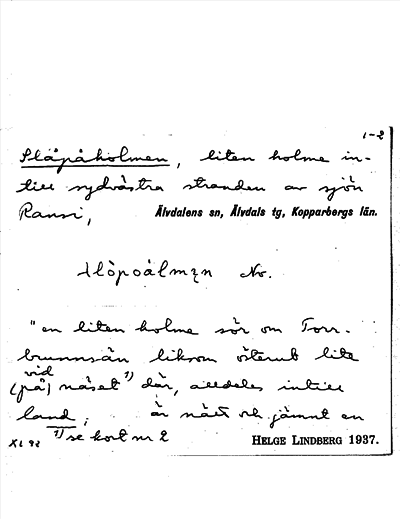 1-2
Slåpåholmen, liten holme in-
till sydvästra stranden av sjön
Ransi, Älvdalens sn, Älvdals tg, Kopparbergs län.
No.
"en liten holme sör om Torr-
brunnsån liksom österut lite
vid
(på) näset 1) där, alldeles intill
land; är nätt och jämnt en
1) se kort nr 2
HELGE LINDBERG 1937.